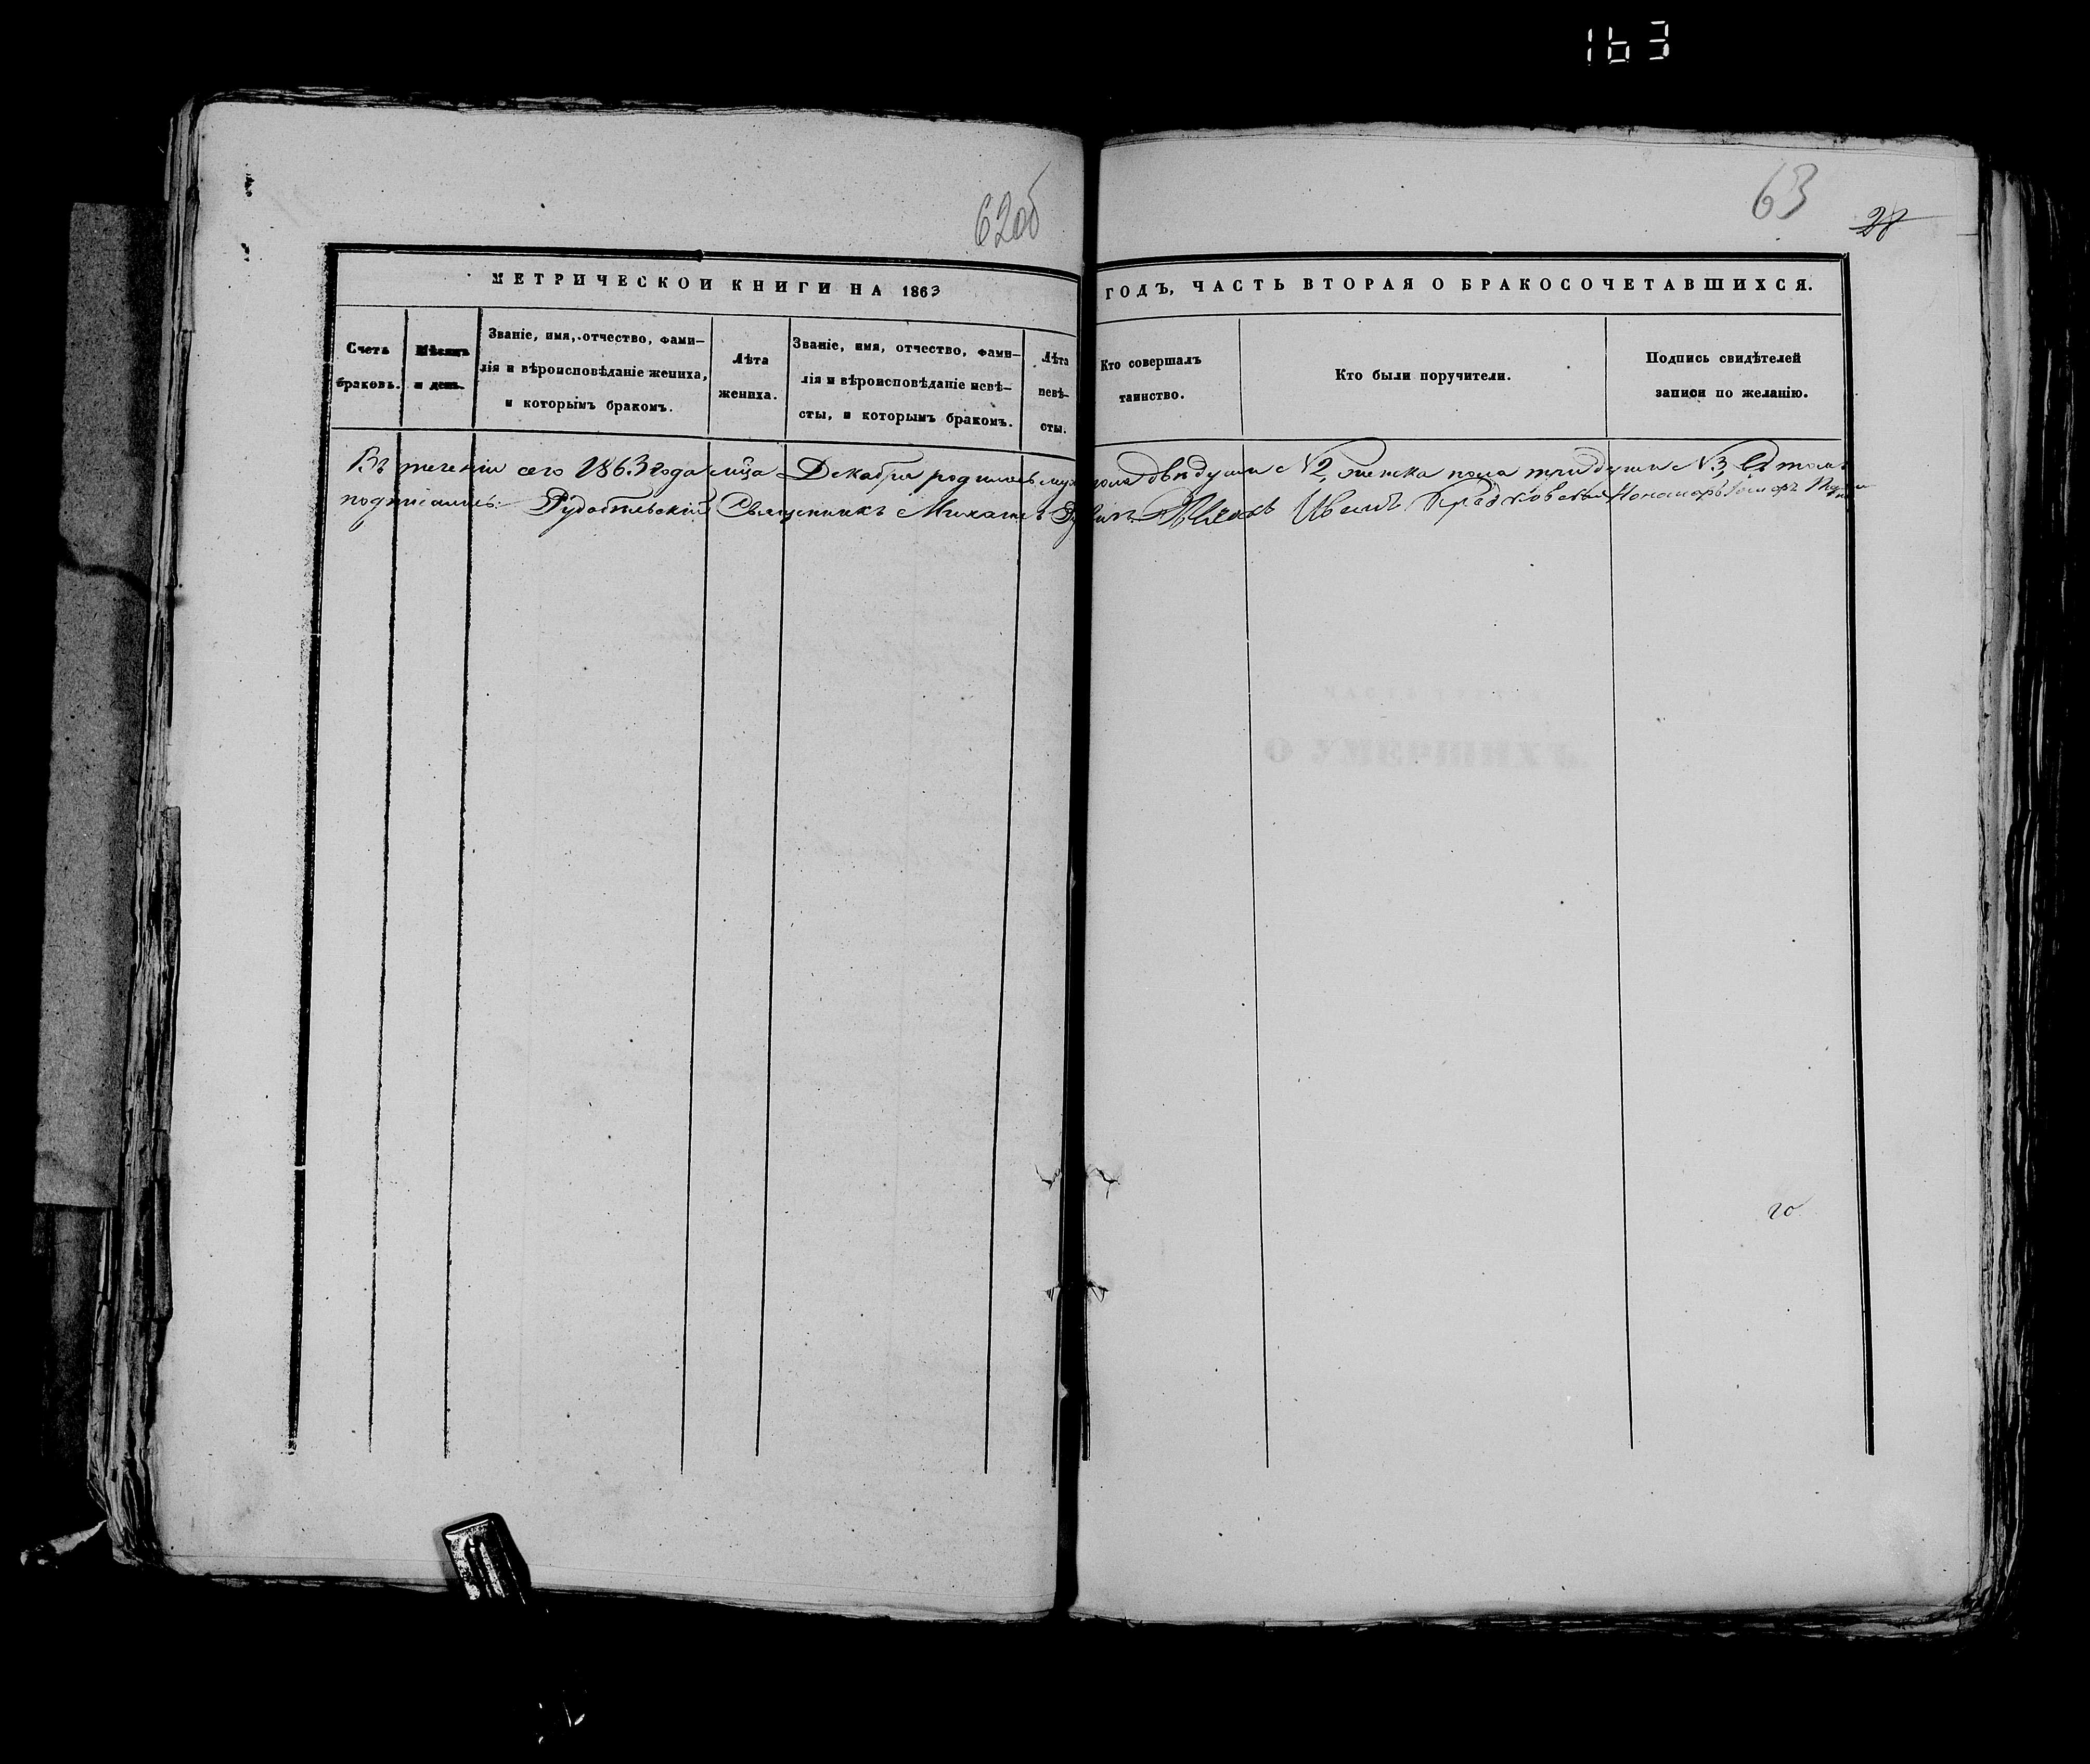 163
62об
63
28
МЕТРИЧЕСКОЙ КНИГИ НА 1863
ГОДЪ, ЧАСТЬ ВТОРАЯ О БРАКОСОЧЕТАВШИХСЯ.
Счетъ
браковъ.
Мѣсяцъ
и день.
Званіе, имя, отчество, фами-
лія и вѣроисповѣданіе жениха,
и которымъ бракомъ.
Лѣта
жениха.
Званіе, имя, отчество, фами-
лія и вѣроисповѣданіе невѣ-
сты, и которымъ бракомъ.
Лѣта
невѣ-
сты.
Кто совершалъ
таинство.
Кто были поручители.
Подпись свидѣтелей
записи по желанію.
Въ теченіи сего 1863 года мца Декабря родилось муж пола двѣ души N 2, женска пола три души N 3, въ томъ
подписались: Рудобѣльскій Священникъ Михаилъ Дьякъ Иванъ Пономарь
О УМЕРШИХЪ.